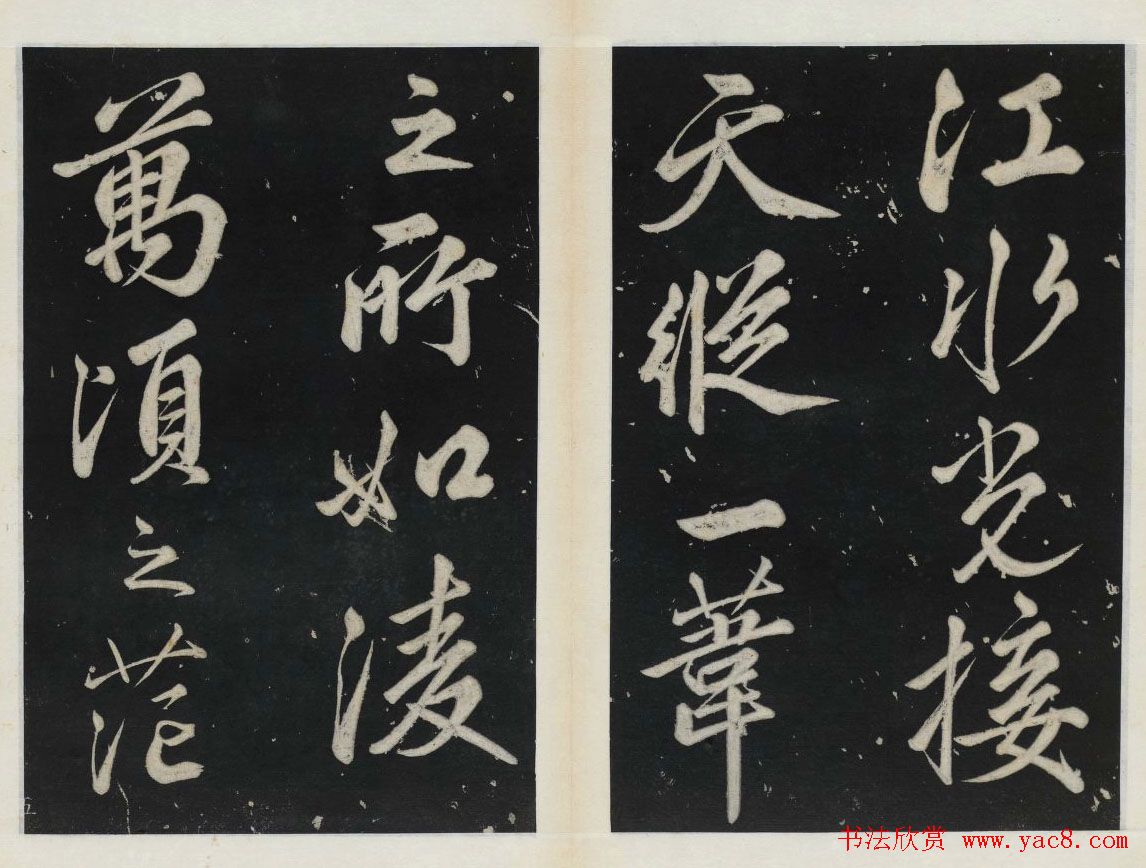 江水光接
天縱一葦
之所如淩
萬頃之茫
书法欣赏 www.yac8.com